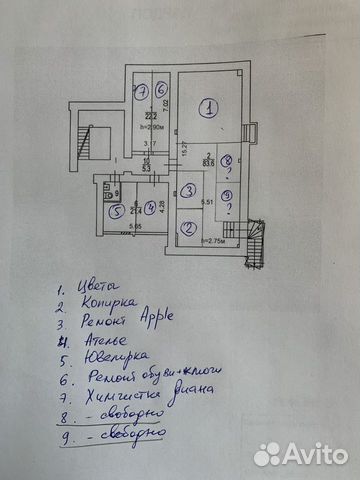 7 6
22.2
7.02
h=2.90м
3.17
1
2
83.6
15.27
8
?
10
5.3
3
9
?
9
5 21.4 4
4.28
5.65
5.51
2
h=2.75м
1. Цветы
2. Копирка
3. Ремонт Apple
4. Ателье
5. Ювелирка
6. Ремонт обуви+ключи
7. Химчистка Диана
8. - свободно
9. - свободно
Avito